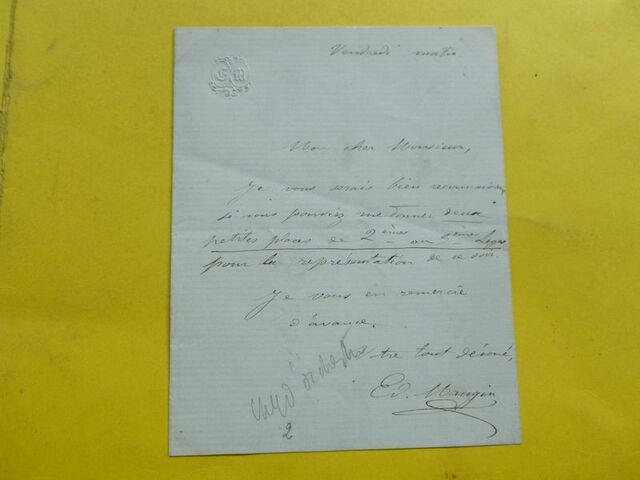 Vendredi matin
EM
Mon cher Monsieur,
Je vous serais bien reconnaissant
si vous pouviez me donner deux
petites places de 2èmes ou 3èmes Loges
pour la représentation de ce soir.
Je vous en remercie
d'avance.
Votre tout dévoué,
Ed. Mangin
chef d'orchestre
2